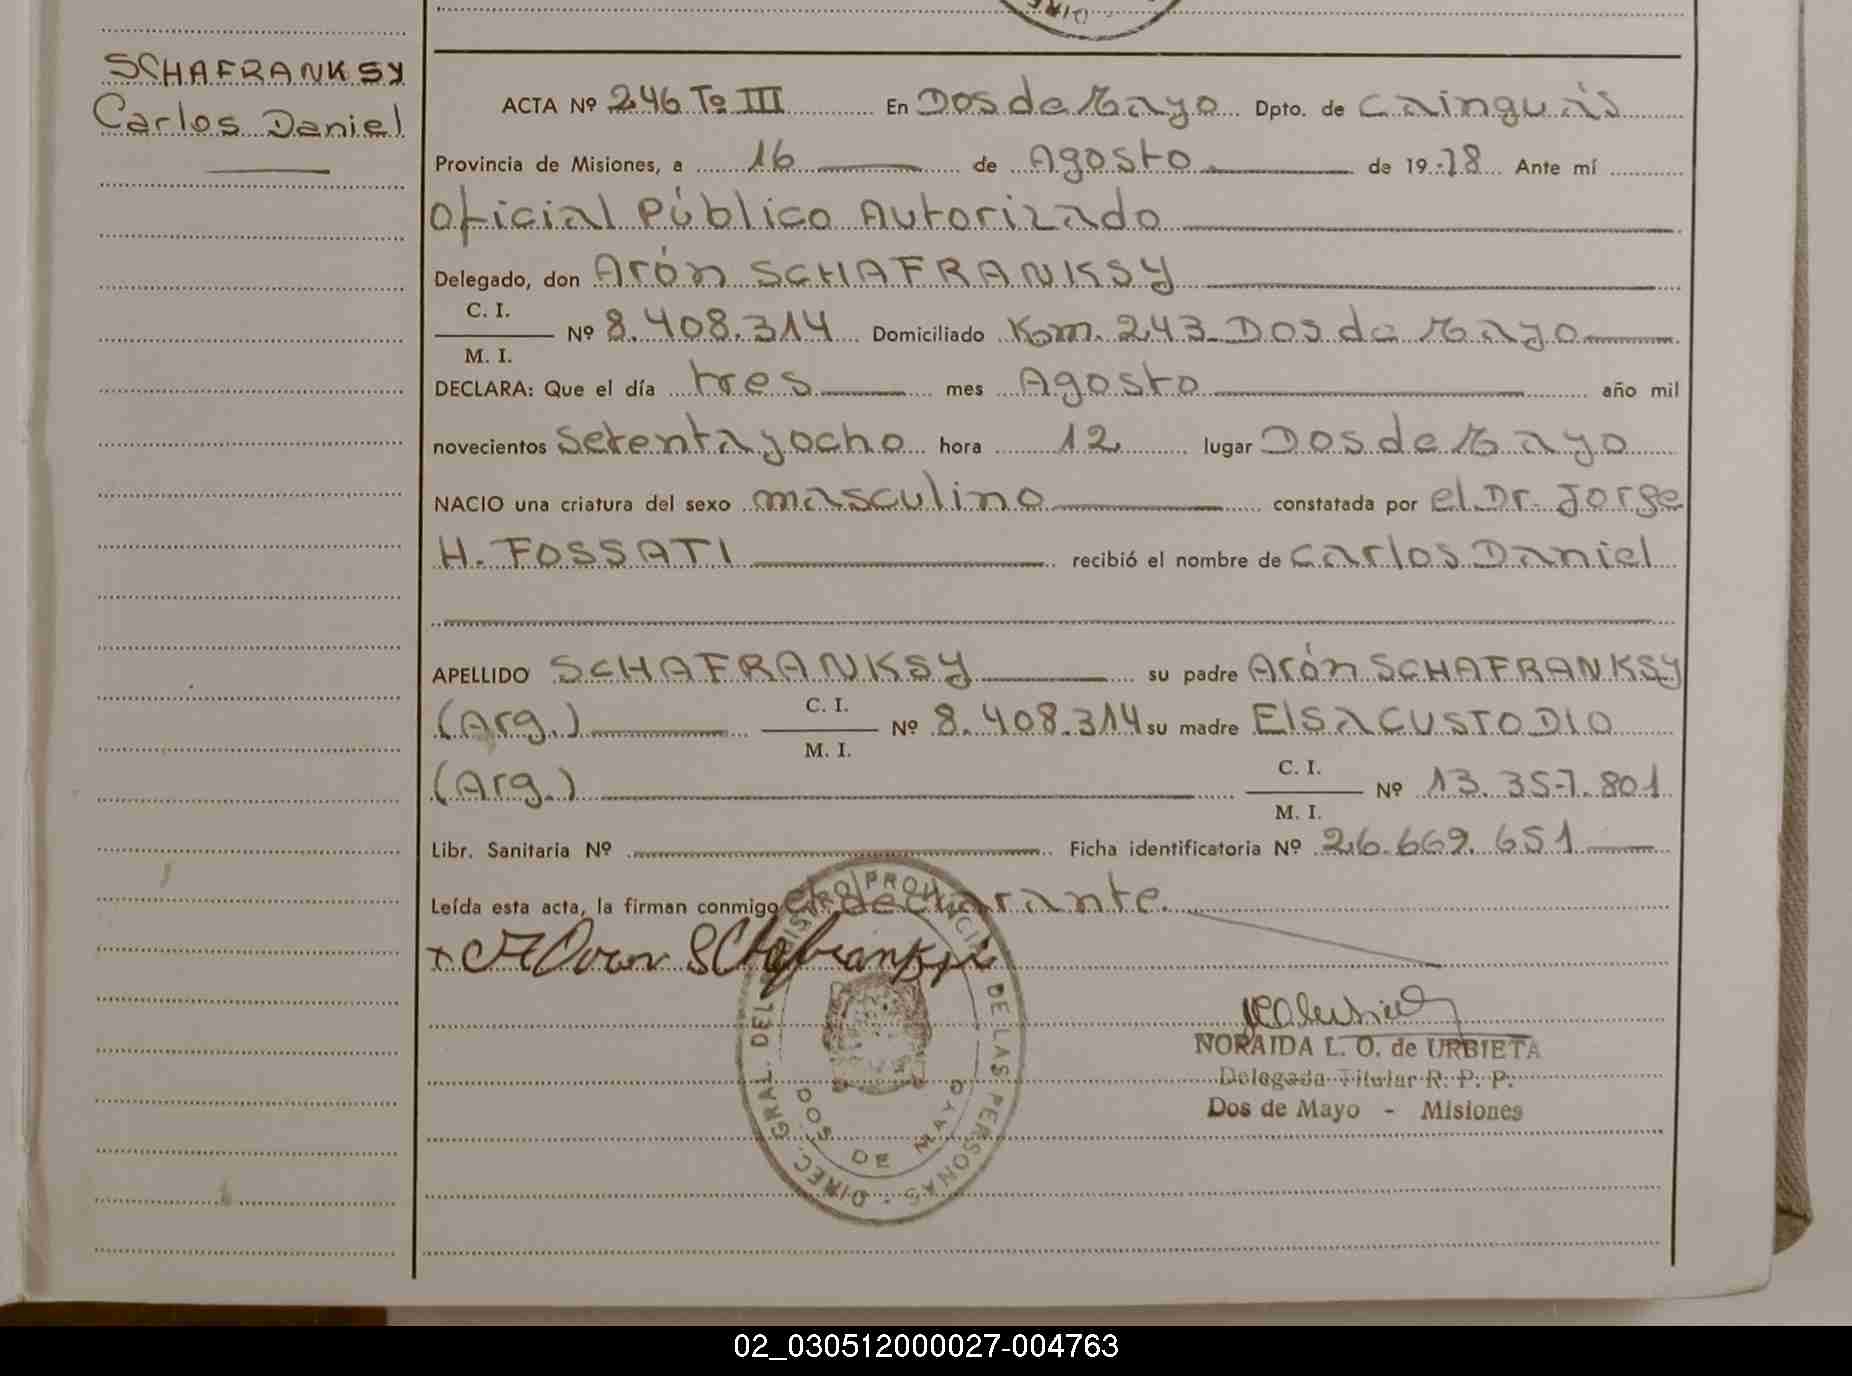 DIREC
SCHAFRANKSY
Carlos Daniel
ACTA Nº 246 Tº III En Dos de Mayo Dpto. de Cainguás
Provincia de Misiones, a 16 de Agosto de 19 78 Ante mí
Oficial Público Autorizado
Delegado, don Arón SCHAFRANKSY
C. I.
M. I.
Nº 8.408.314 Domiciliado Km. 243 Dos de Mayo
DECLARA: Que el día tres mes Agosto año mil
novecientos setenta y ocho hora 12 lugar Dos de Mayo
NACIO una criatura del sexo masculino constatada por el Dr. Jorge
H. FOSSATI recibió el nombre de Carlos Daniel
APELLIDO SCHAFRANKSY su padre Arón SCHAFRANKSY
(Arg.) C. I. M. I. Nº 8.408.314 su madre Elsa CUSTODIO
(Arg.) C. I. M. I. Nº 13.357.801
Libr. Sanitaria Nº Ficha identificatoria Nº 26.669.651
Leída esta acta, la firman conmigo el declarante.
DIREC. GRAL. DEL REGISTRO PROVINCIAL DE LAS PERSONAS
DOS DE MAYO
NORAIDA L. O. de URBIETA
Delegada Titular R. P. P.
Dos de Mayo - Misiones
02_030512000027-004763